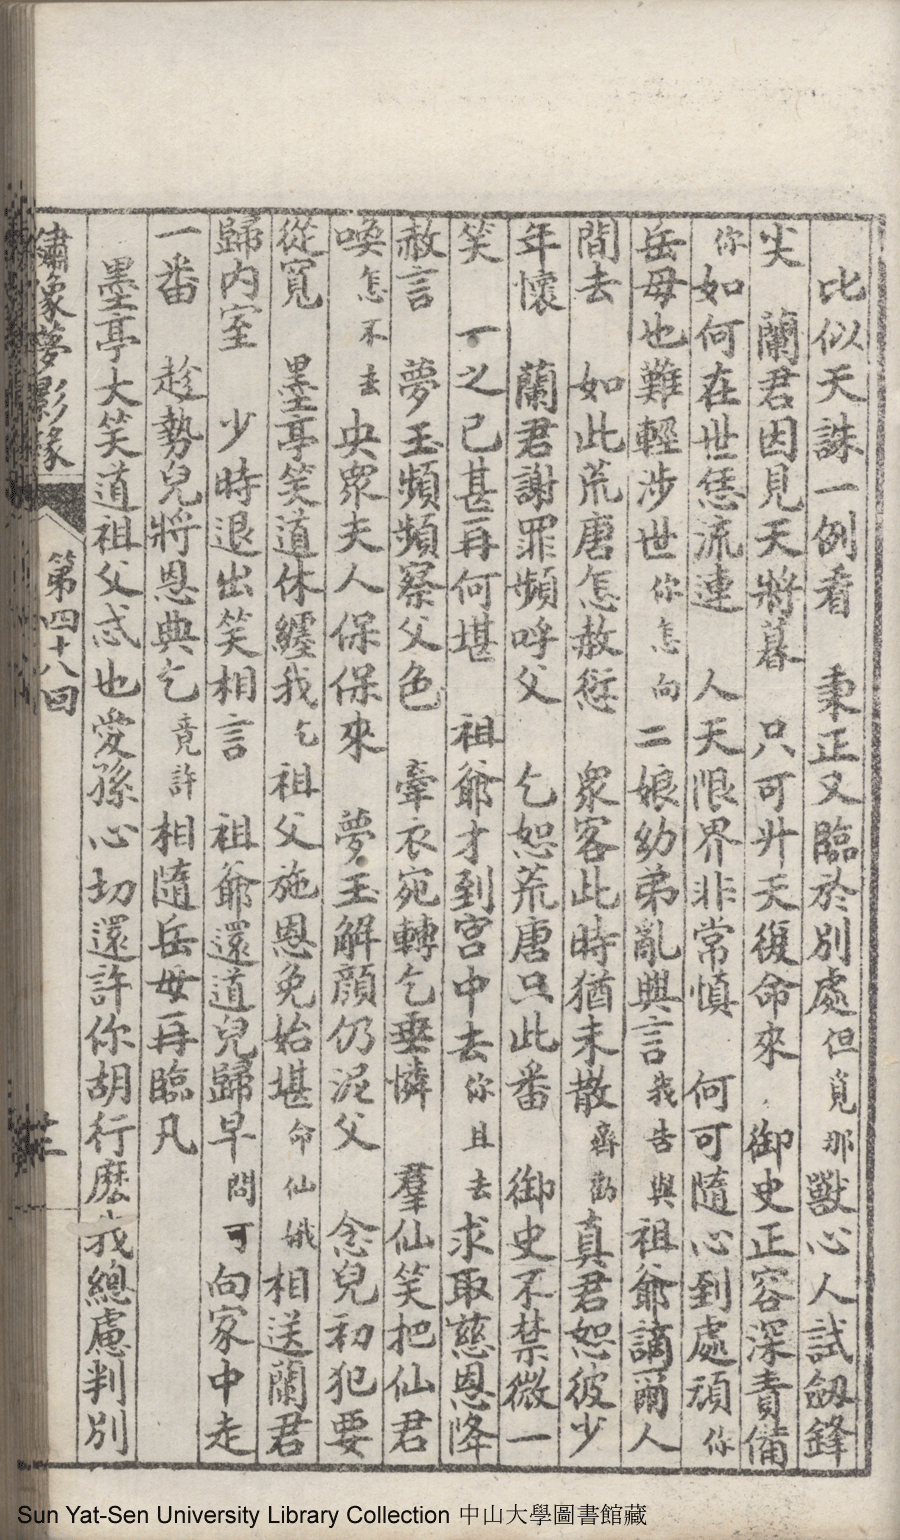 比似天誅一例看　秉正又臨於別處但覓那獸心人試劔鋒
尖　蘭君因見天將暮　只可升天復命來　御史正容深責備
你如何在世恁流連　人天限界非常慎　何可隨心到處頑你
岳母也難輕涉世你怎向二娘幼弟亂興言我告與祖爺謫爾人
間去　如此荒唐怎赦愆　衆客此時猶未散齊勸真君恕彼少
年懷　蘭君謝罪頻呼父　乞恕荒唐只此番　御史不禁微一
笑　一之已甚再何堪　祖爺才到宮中去你且去求取慈恩降
赦言　夢玉頻頻察父色　牽衣宛轉乞垂憐　羣仙笑把仙君
喚怎不去央衆夫人保保來　夢玉解顏仍泥父　念兒初犯要
從寬　墨亭笑道休纏我乞祖父施恩免始堪命仙娥相送蘭君
歸內室　少時退出笑相言　祖爺還道兒歸早問可向家中走
一番　趁勢兒將恩典乞竟許相隨岳母再臨凡
墨亭大笑道祖父忒也愛孫心切還許你胡行麽我總慮判別
繡像夢影緣　第四十八回
Sun Yat-Sen University Library Collection 中山大學圖書館藏